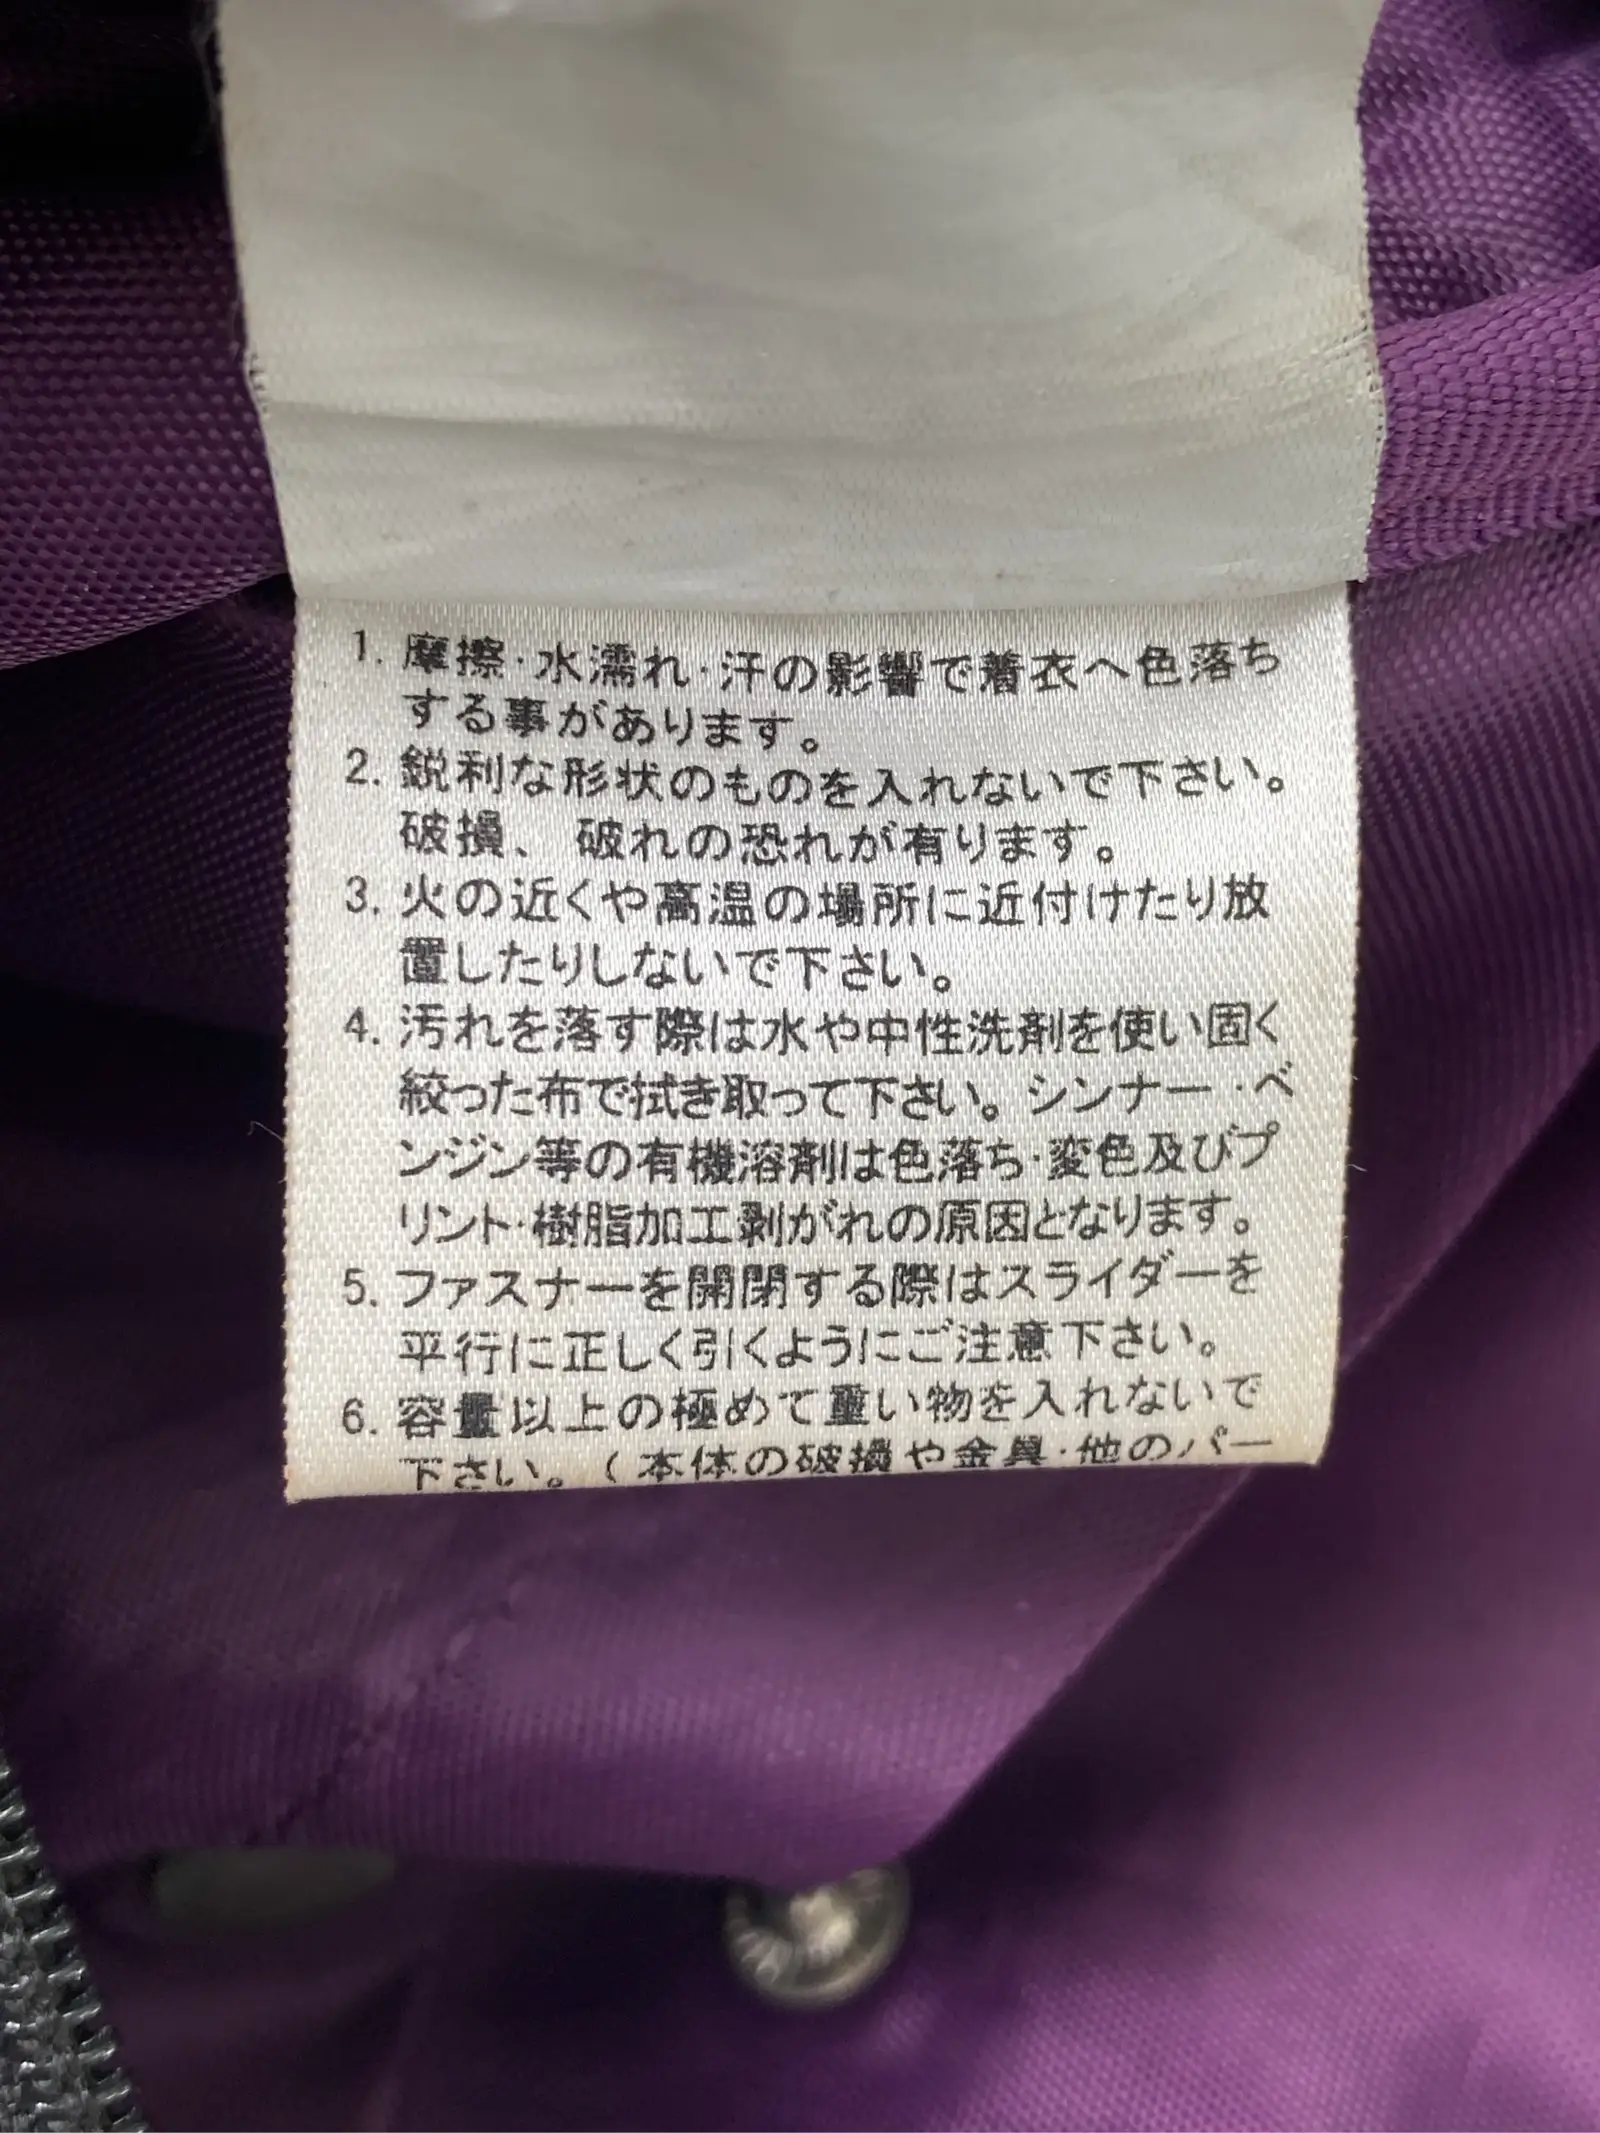 1. 摩擦・水濡れ・汗の影響で着衣へ色落ち
する事があります。
2. 鋭利な形状のものを入れないで下さい。
破損、破れの恐れが有ります。
3. 火の近くや高温の場所に近付けたり放
置したりしないで下さい。
4. 汚れを落す際は水や中性洗剤を使い固く
絞った布で拭き取って下さい。シンナー・ベ
ンジン等の有機溶剤は色落ち・変色及びプ
リント・樹脂加工剥がれの原因となります。
5. ファスナーを開閉する際はスライダーを
平行に正しく引くようにご注意下さい。
6. 容量以上の極めて重い物を入れないで
下さい。(本体の破損や金具・他のパー